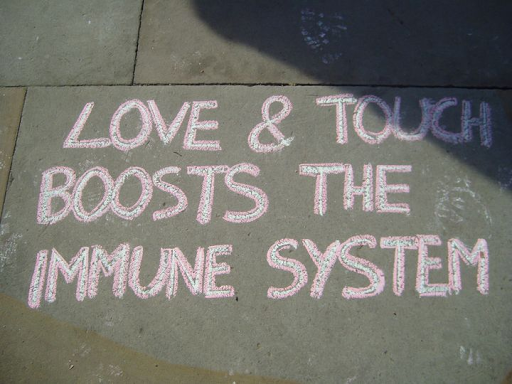 LOVE & TOUCH
BOOSTS THE
IMMUNE SYSTEM